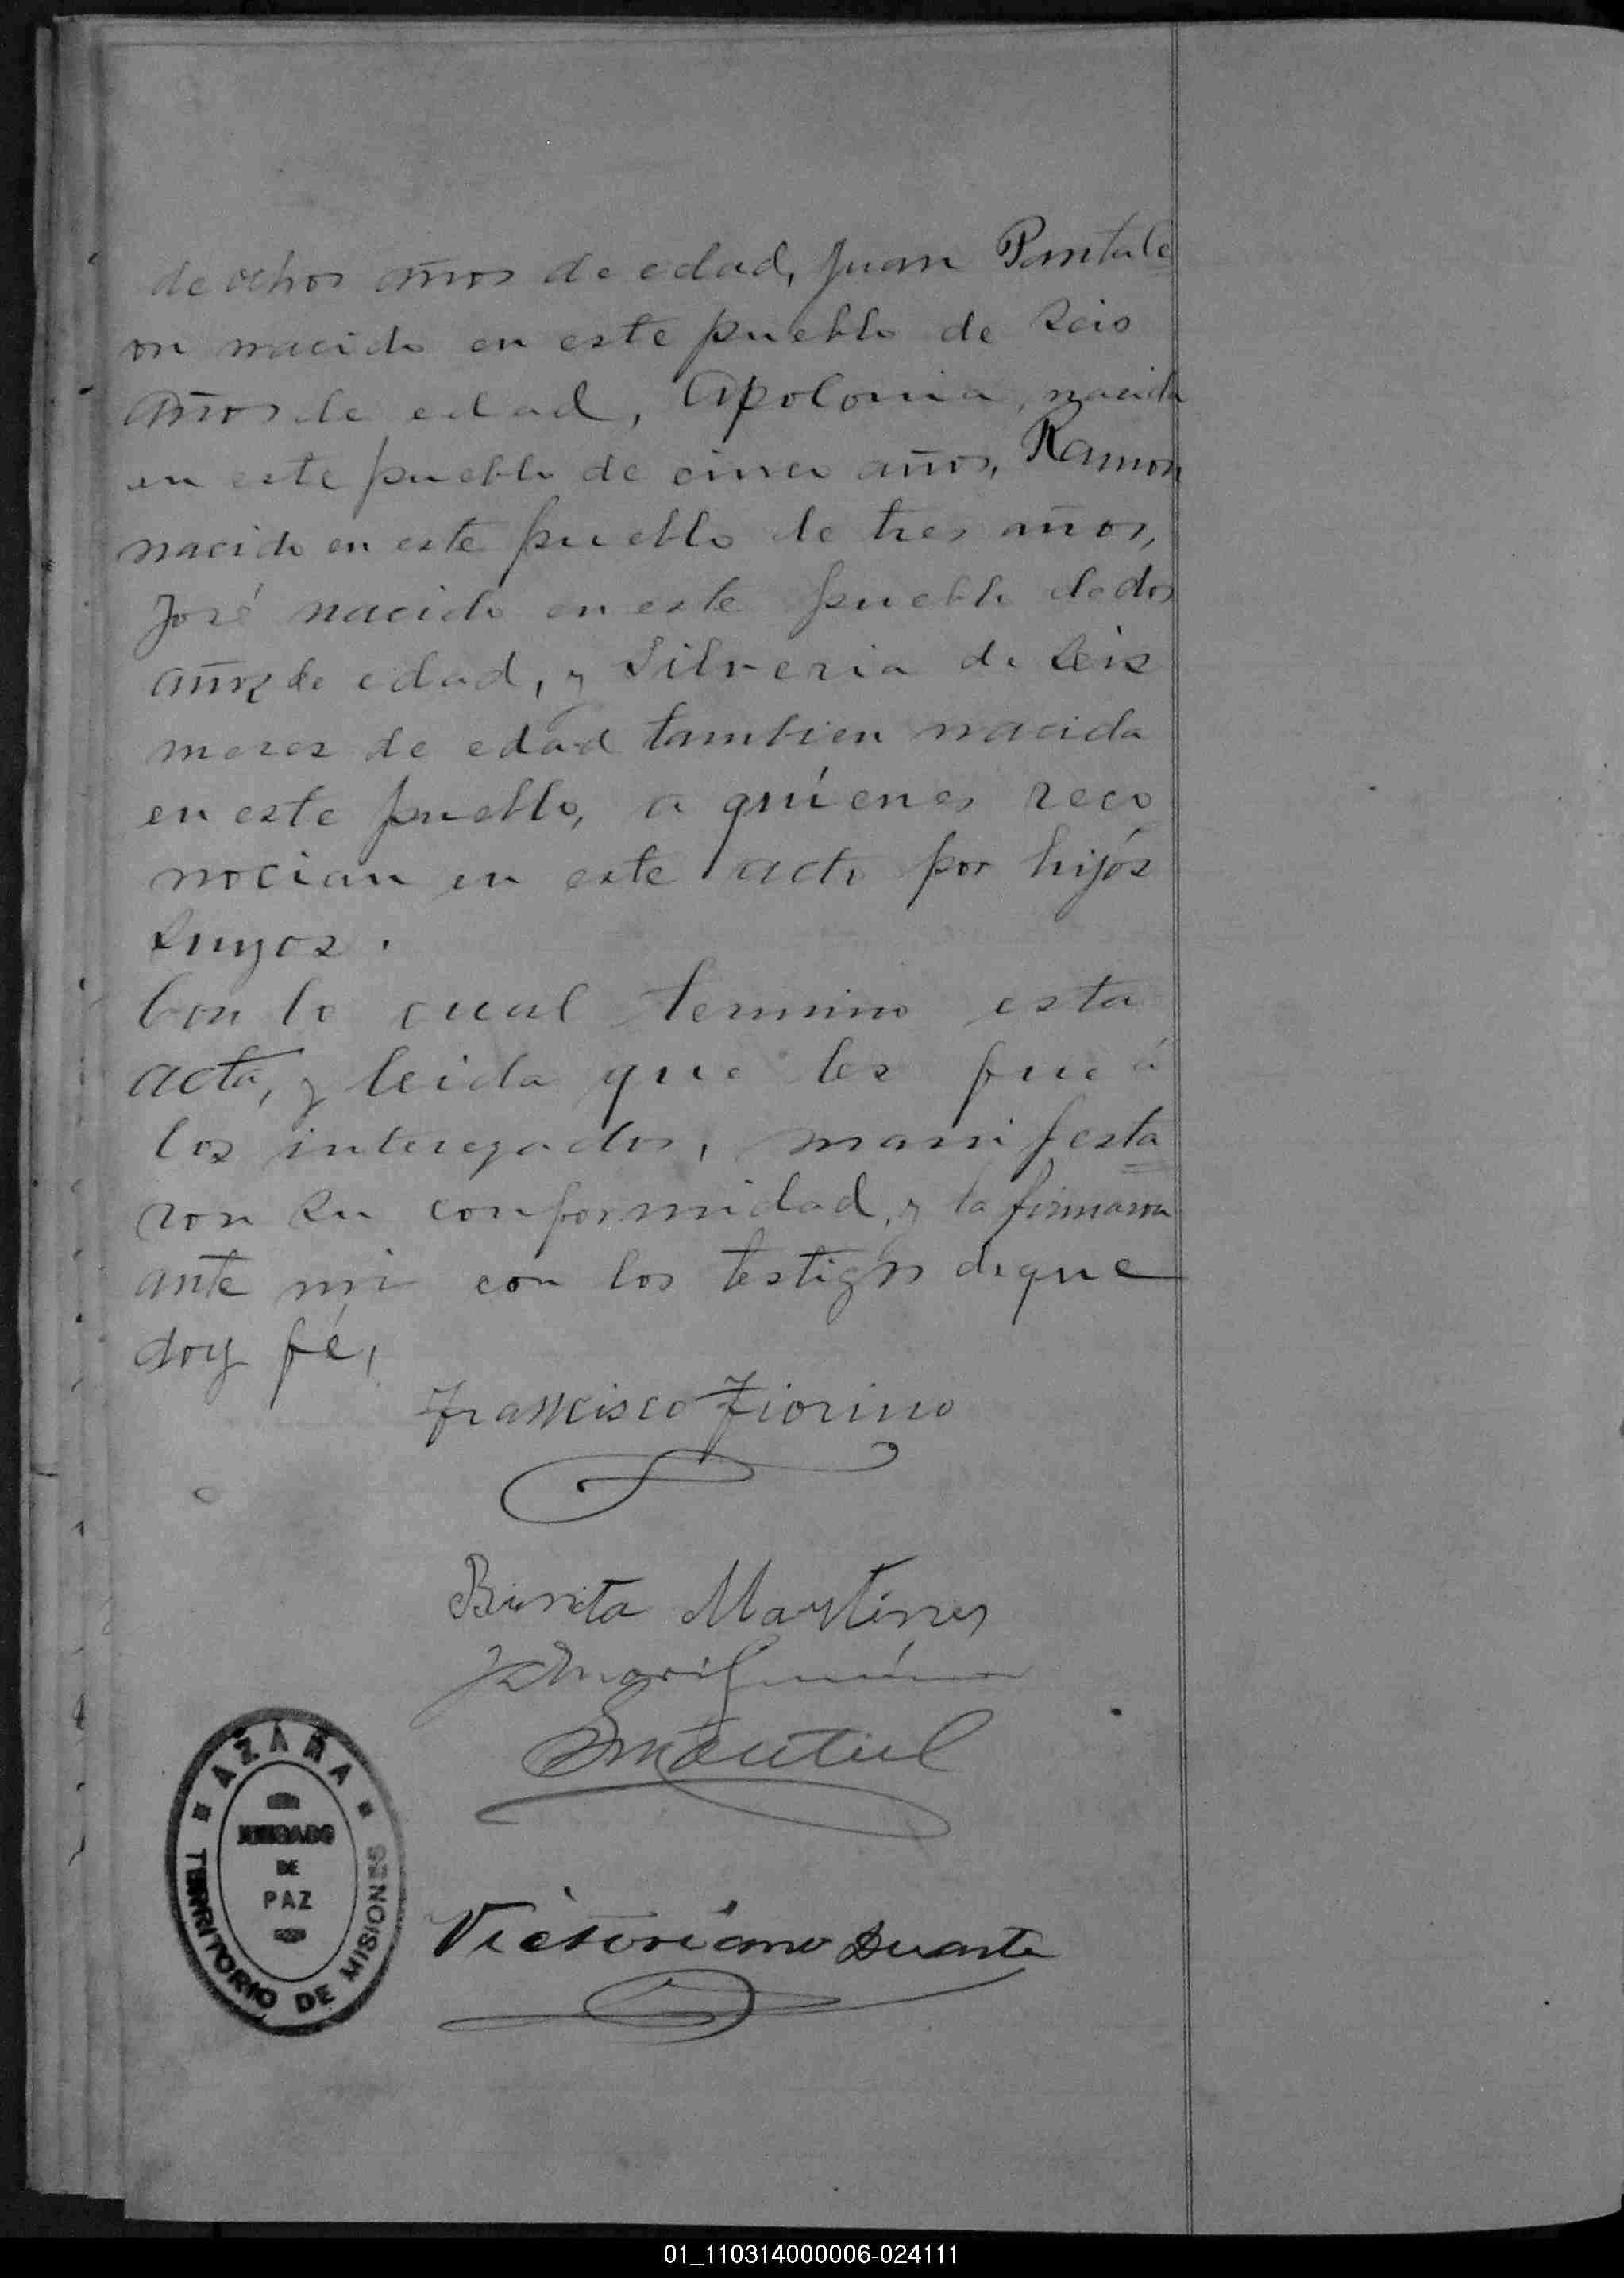 de ochos años de edad, Juan Pantale
on nacido en este pueblo de seis
años de edad, Apolonia, nacida
en este pueblo de cinco años, Ramon
nacido en este pueblo de tres años,
José nacido en este pueblo de dos
años de edad, y Silveria de seis
meses de edad tambien nacida
en este pueblo, a quíenes reco
nocian en este acto por hijós
suyos.
Con lo cual termino esta
acta, y leida que les fué á
los interezados, manifesta
ron su conformidad, y la firmaron
ante mi con los testigos de que
doy fé,
Francisco Fiorino
Binita Martines
Victoriano Duarte
AZARA
JUZGADO
DE
PAZ
TERRITORIO DE MISIONES
01_110314000006-024111